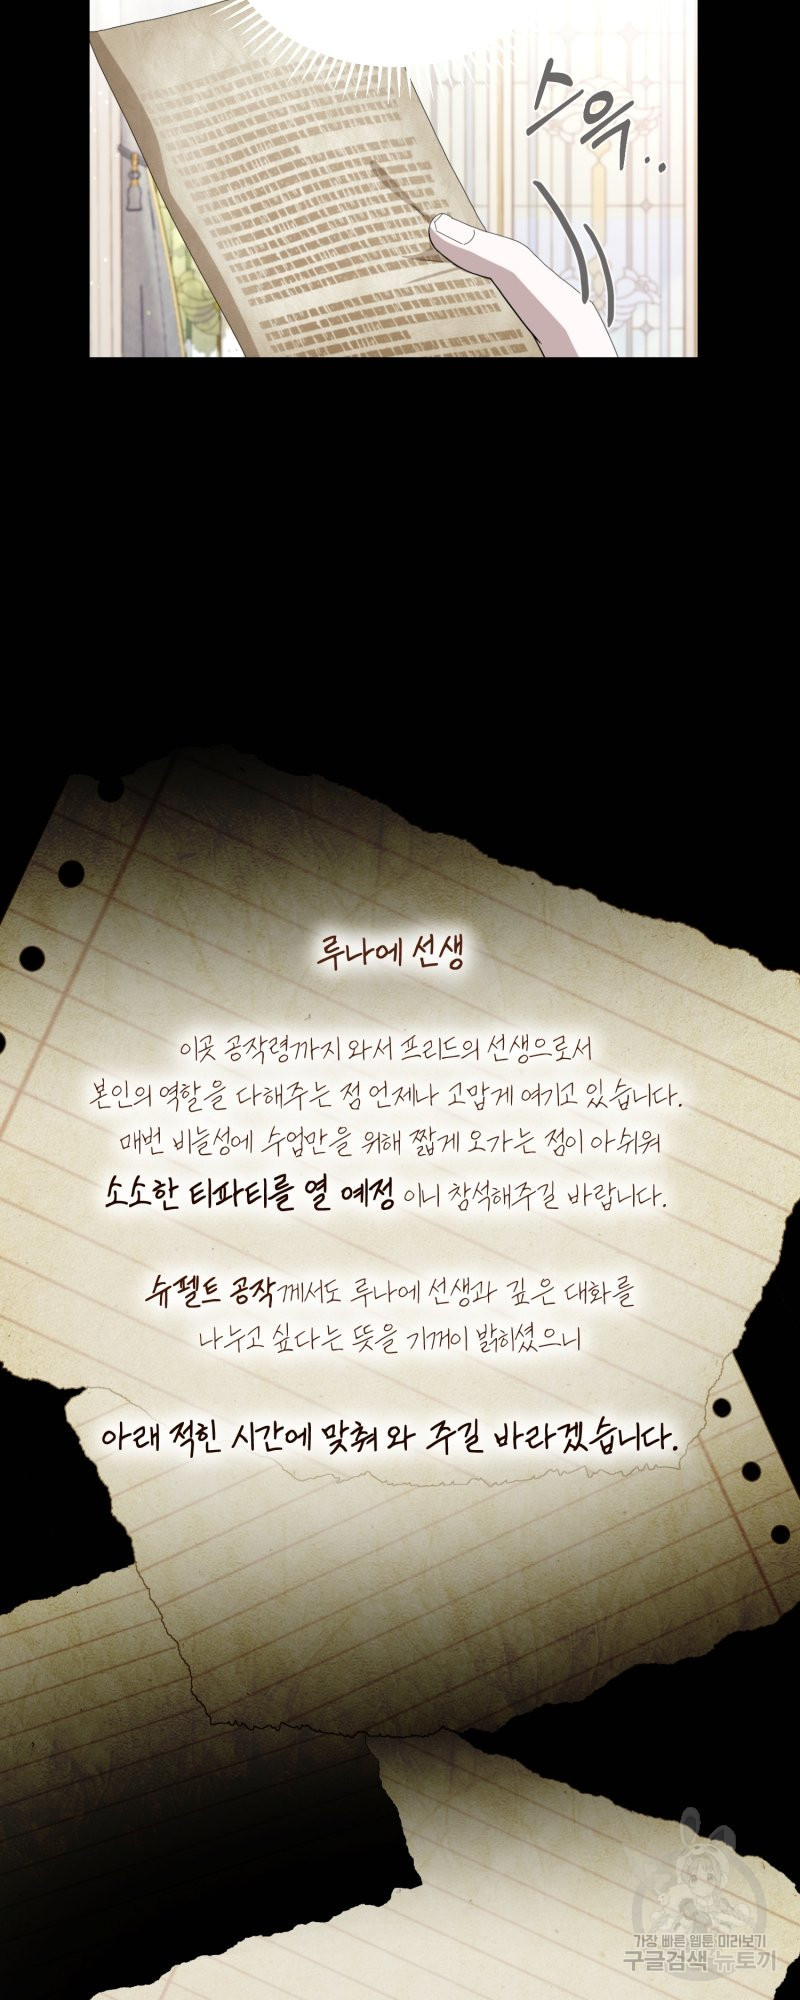 스윽..
루나에 선생
이곳 공작령까지 와서 프리드의 선생으로서
본인의 역할을 다해주는 점 언제나 고맙게 여기고 있습니다.
매번 비늘성에 수업만을 위해 짧게 오가는 점이 아쉬워
소소한 티파티를 열 예정 이니 참석해주길 바랍니다.
슈펠트 공작께서도 루나에 선생과 깊은 대화를
나누고 싶다는 뜻을 기꺼이 밝히셨으니
아래 적힌 시간에 맞춰 와 주길 바라겠습니다.
가장 빠른 웹툰 미리보기
구글검색 뉴토끼